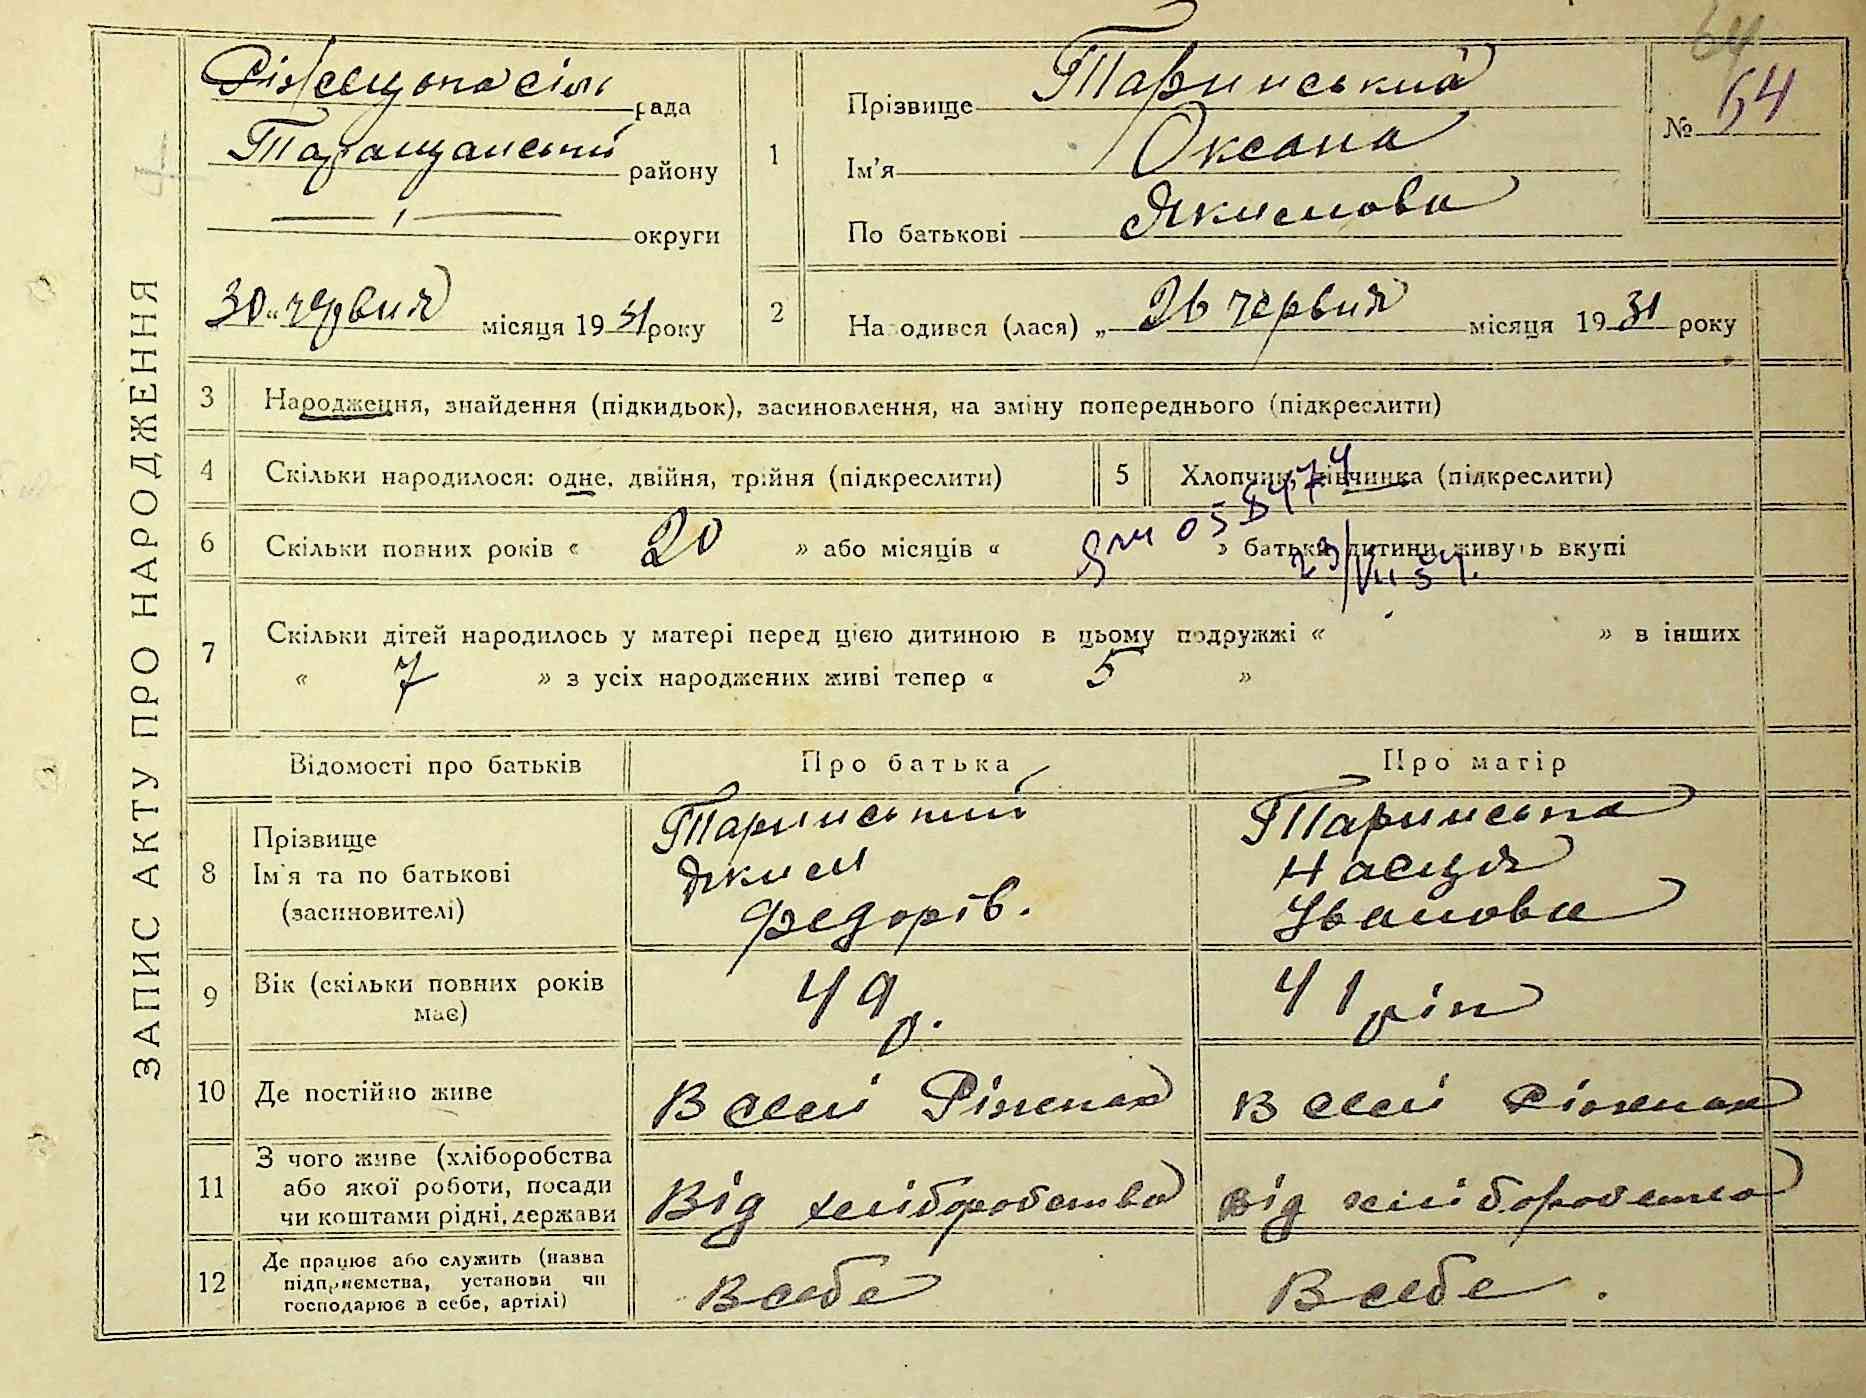 64
ЗАПИС АКТУ ПРО НАРОДЖЕННЯ
рада
Таращанський району
округи
30 червня місяця 1931 року
1 Прізвище Таринський
Ім'я Оксана
По батькові Якимова
№ 64
2 Народився (лася) „ 26 червня місяця 1931 року
3 Народження, знайдення (підкидьок), засиновлення, на зміну попереднього (підкреслити)
4 Скільки народилося: одне, двійня, трійня (підкреслити)
5 Хлопчик, дівчинка (підкреслити)
6 Скільки повних років « 20 » або місяців « » батьки дитини живуть вкупі
058474
23/VII 54.
7 Скільки дітей народилось у матері перед цією дитиною в цьому подружжі « » в інших
« 7 » з усіх народжених живі тепер « 5 »
Відомості про батьків Про батька Про матір
8 Прізвище
Ім'я та по батькові
(засиновителі)
Таринський
Яким
Федорів.
Таринська
Насця
Іванова
9 Вік (скільки повних років
має)
49 р.
41 рік
10 Де постійно живе
В селі Ріжках
В селі Ріжках
11 З чого живе (хліборобства
або якої роботи, посади
чи коштами рідні, держави
Від хліборобства
Від хліборобства
12 Де працює або служить (назва
підприємства, установи чи
господарює в себе, артілі)
В себе
В себе.